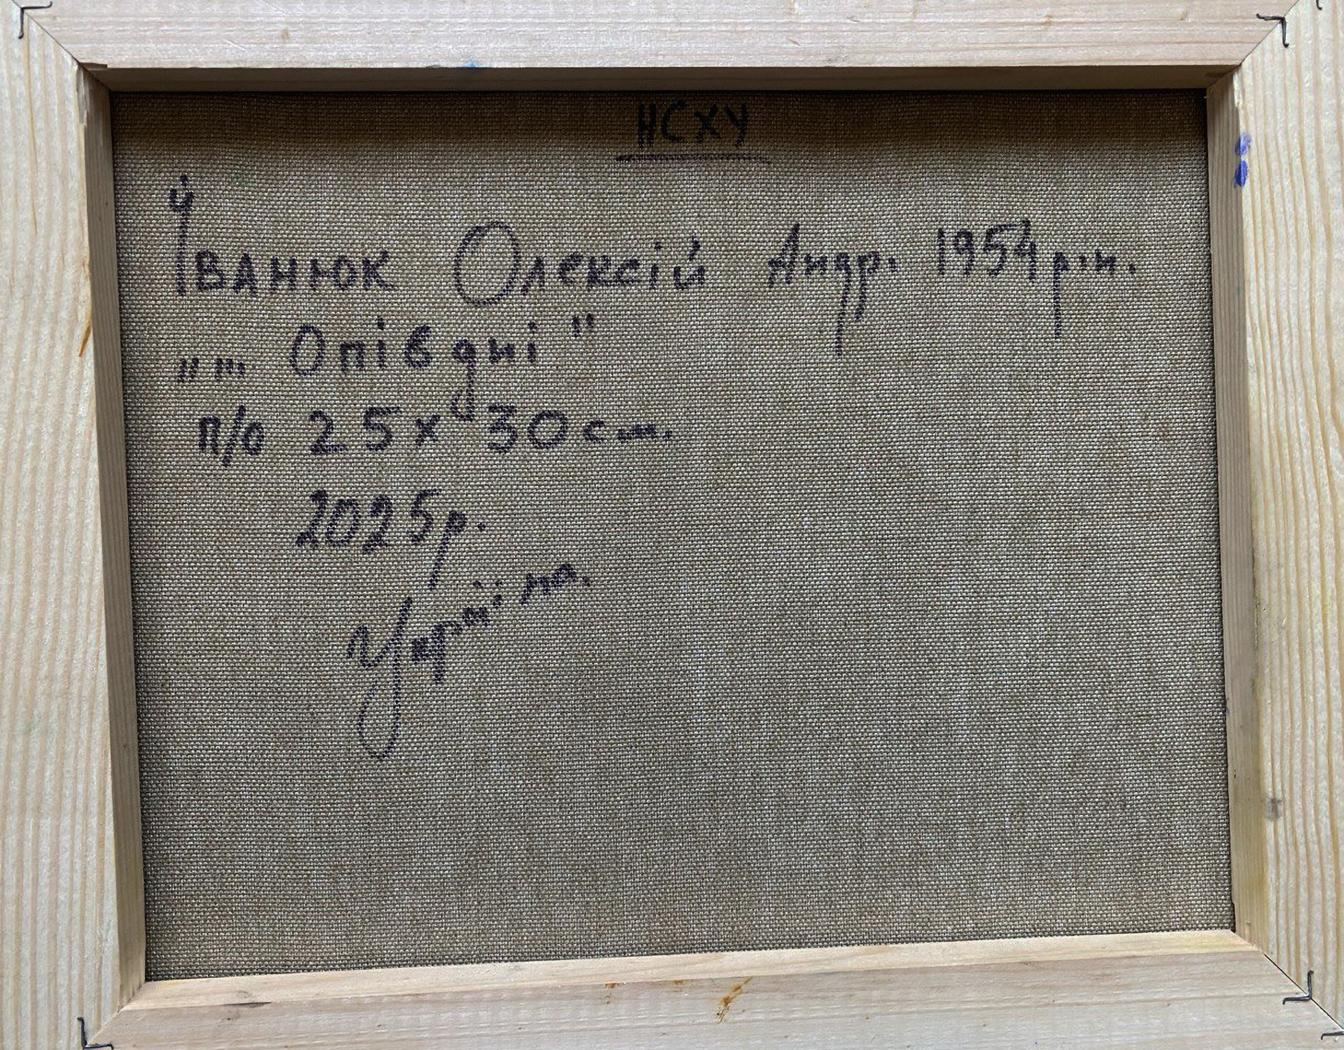 НСХУ
Іванюк Олексій Андр. 1954 р.н.
„... Опівдні"
п/о 25х30 см.
2025р.
Україна.